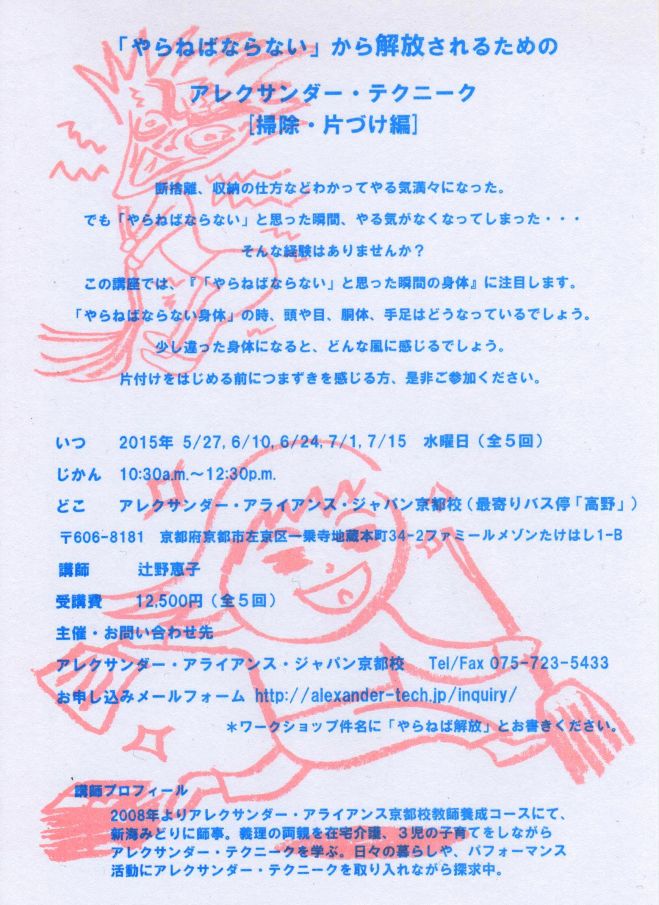 「やらねばならない」から解放されるための
アレクサンダー・テクニーク
[掃除・片づけ編]
断捨離、収納の仕方などわかってやる気満々になった。
でも「やらねばならない」と思った瞬間、やる気がなくなってしまった・・・
そんな経験はありませんか？
この講座では、『「やらねばならない」と思った瞬間の身体』に注目します。
「やらねばならない身体」の時、頭や目、胴体、手足はどうなっているでしょう。
少し違った身体になると、どんな風に感じるでしょう。
片付けをはじめる前につまずきを感じる方、是非ご参加ください。
いつ 2015年 5/27,6/10,6/24,7/1,7/15 水曜日（全５回）
じかん 10:30a.m.～12:30p.m.
どこ アレクサンダー・アライアンス・ジャパン京都校（最寄りバス停「高野」）
〒606-8181 京都府京都市左京区一乗寺地蔵本町34-2ファミールメゾンたけはし1-B
講師 辻野恵子
受講費 12,500円（全５回）
主催・お問い合わせ先
アレクサンダー・アライアンス・ジャパン京都校 Tel/Fax 075-723-5433
お申し込みメールフォーム http://alexander-tech.jp/inquiry/
＊ワークショップ件名に「やらねば解放」とお書きください。
講師プロフィール
2008年よりアレクサンダー・アライアンス京都校教師養成コースにて、
新海みどりに師事。義理の両親を在宅介護、３児の子育てをしながら
アレクサンダー・テクニークを学ぶ。日々の暮らしや、パフォーマンス
活動にアレクサンダー・テクニークを取り入れながら探求中。